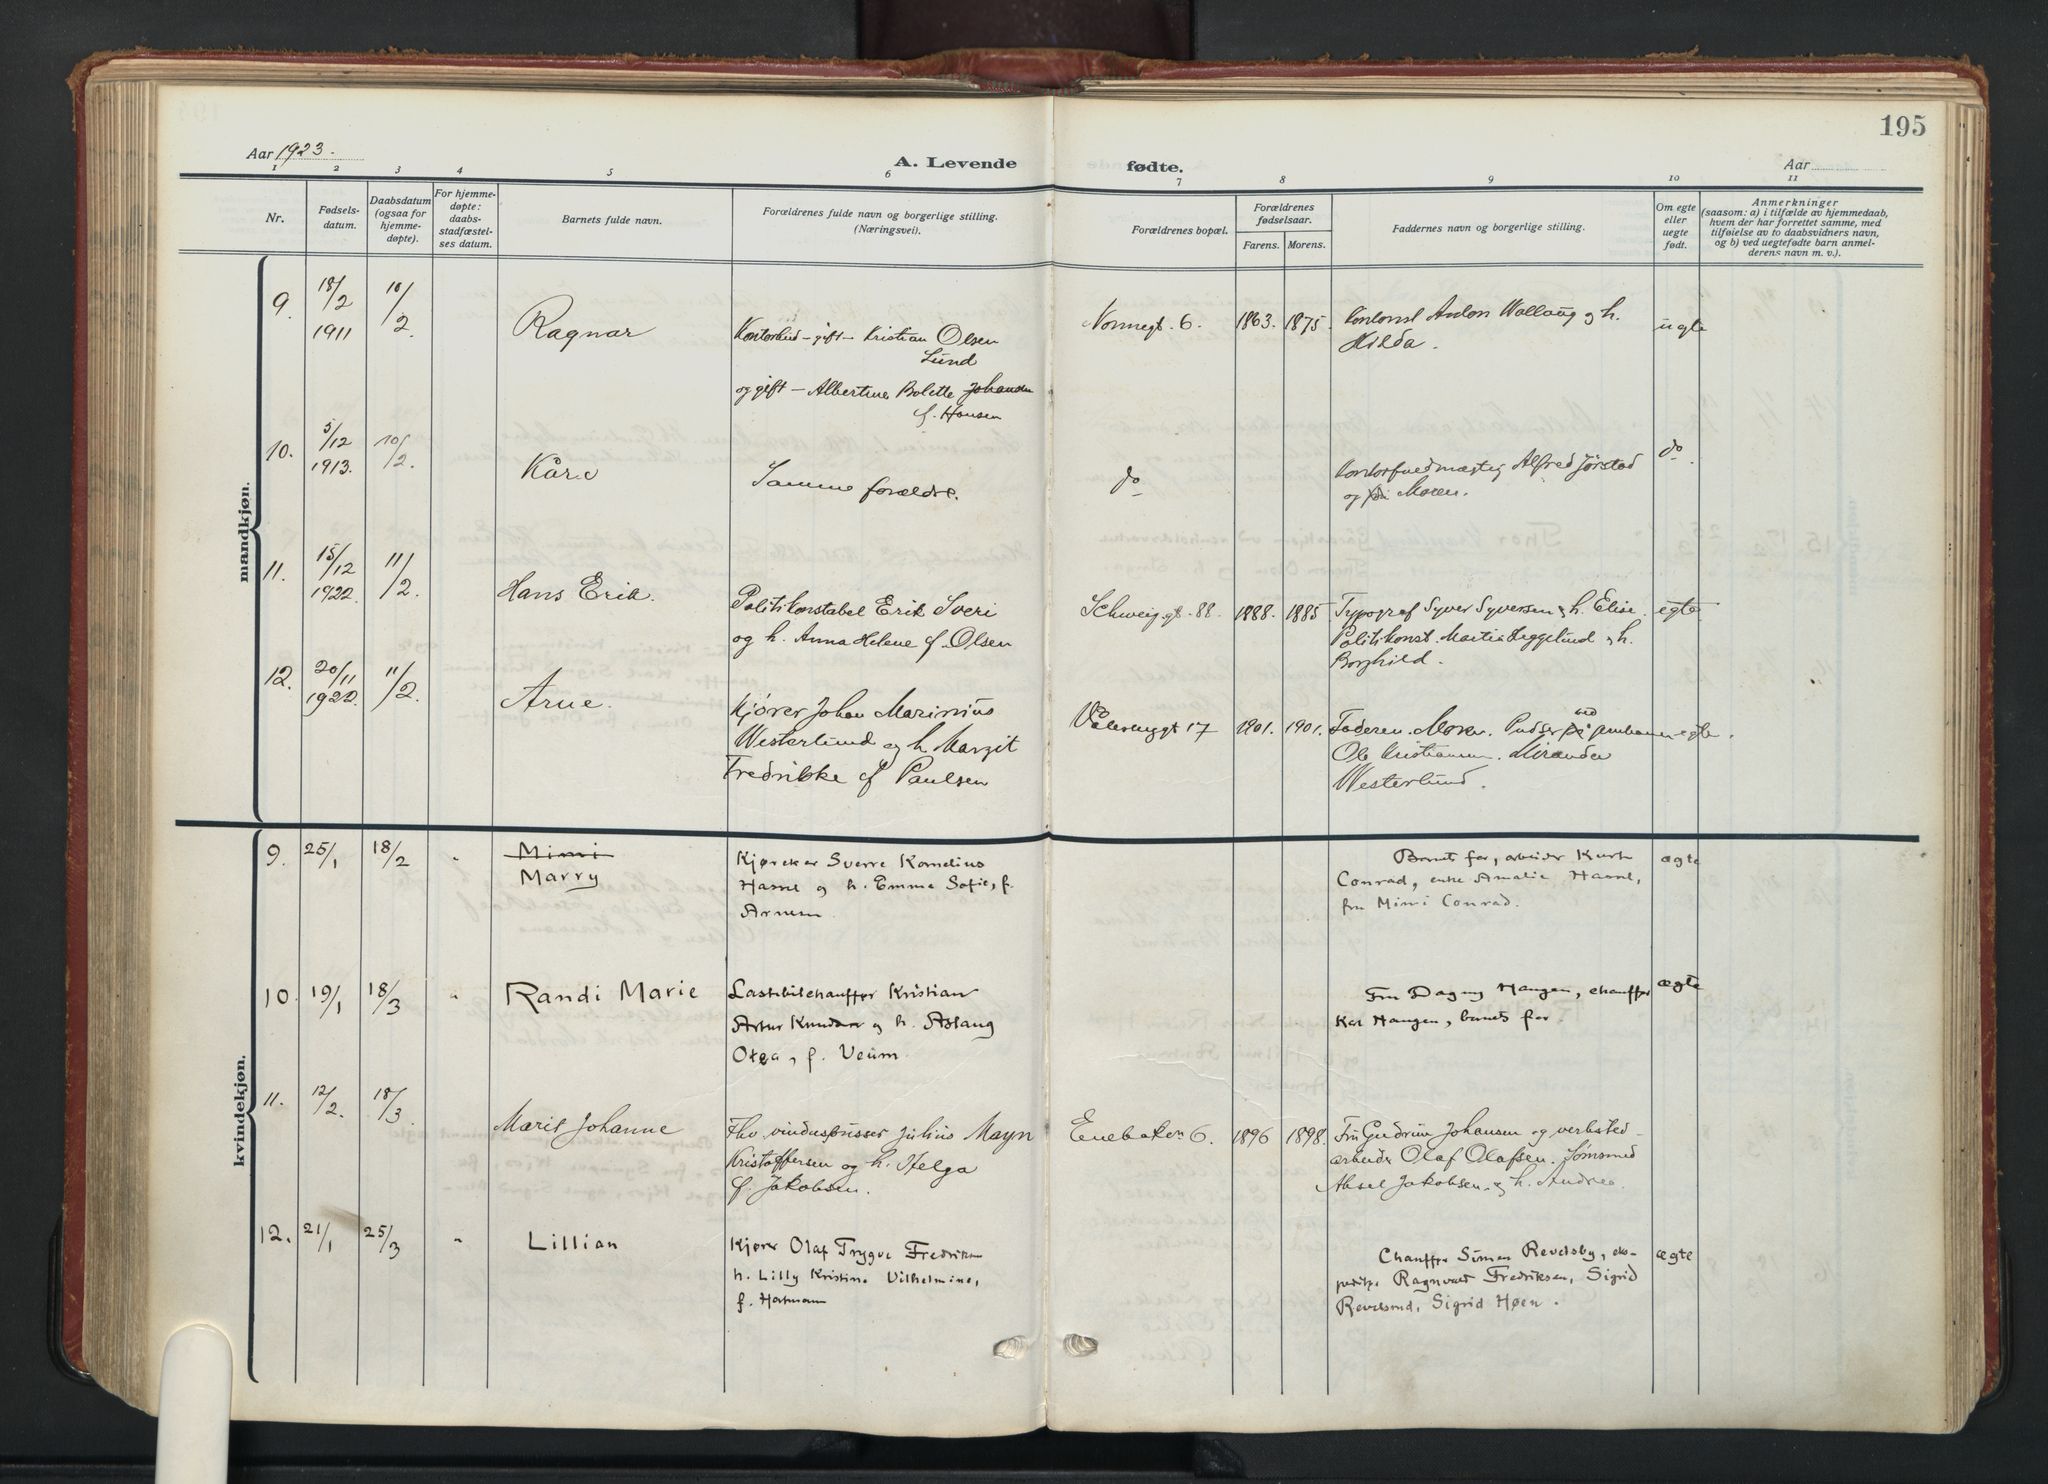 195
Aar 1923.
A. Levende fødte.
Aar
1 2 3 4 5 6 7 8 9 10 11
Nr.
Fødsels-
datum.
Daabsdatum
(ogsaa for
hjemme-
døpte).
For hjemme-
døpte:
daabs-
stadfæstel-
ses datum.
Barnets fulde navn.
Forældrenes fulde navn og borgerlige stilling.
(Næringsvei).
Forældrenes bopæl.
Forældrenes
fødselsaar.
Farens. Morens.
Faddernes navn og borgerlige stilling.
Om egte
eller
uegte
født.
Anmerkninger
(saasom: a) i tilfælde av hjemmedaab,
hvem der har forrettet samme, med
tilføielse av to daabsvidners navn,
og b) ved uegtefødte barn anmel-
derens navn m. v.).
mandkjøn.
9. 18/2 1911 10/2. Ragnar
Kontorbud - gift - Kristian Olsen
Lund
og gift - Albertine Bolette Johansen
f. Hansen
Nonnegt. 6. 1863. 1875.
Anton Wollaug og h.
Hilda.
uegte
10. 5/12 1913. 10/2. Kåre
Samme forældre.
do
Kontorfuldmægtig Alfred Jørstad
og Moren.
do.
11. 15/12 1922. 11/2. Hans Erik.
Politikonstabel Erik Sveri
og h. Anna Helene f. Olsen
Schweigгt. 88. 1888. 1885
Typograf Syver Syversen & h. Elise.
Politikonst. Martin Leggelund & h.
Borghild.
egte
12. 20/11 1922. 11/2. Arne.
Kjører Johan Marinius
Westerlund og h Margit
Fredrikke f Paulsen
Vålerenggt 17 1901. 1901.
Faderen. Moren. Pudser ved jernbanen
Ole Kristiansen. Miranda
Westerlund.
egte.
kvindekjøn.
9. 25/1 18/2 " Mimi
Marry
Kjørekar Sverre Kornelius
Hassel og h. Emma Sofie, f.
Arnesen
Barnets far, arbeider Kurt
Conrad, enke Amalie Hassel,
fru Mimi Conrad.
ægte
10. 19/1 18/3 " Randi Marie
Lastebilchauffør Kristian
Artur Knudsen og h. Aslaug
Olga, f. Veum.
Fru Dagny Haugen, chauffør
Karl Haugen, barnets far.
ægte
11. 12/2. 18/3 Marit Johanne
Fhv. vinduspusser Julius Mayn
Kristoffersen og h. Helga
f. Jakobsen.
Enebakvn 6. 1896 1898.
Fru Gudrun Johansen og verksted-
arbeider Olaf Olafsen. Sømsmed
Aksel Jakobsen. og h. Andrea.
12. 21/1 25/3 " Lillian
Kjører Olaf Trygve Fredriksen
h. Lilly Kristine Vilhelmine,
f. Hartmann
Chauffør Simen Revelsby, eks-
peditør Ragnvald Fredriksen, Sigrid
Sigrid Høen.
ægte